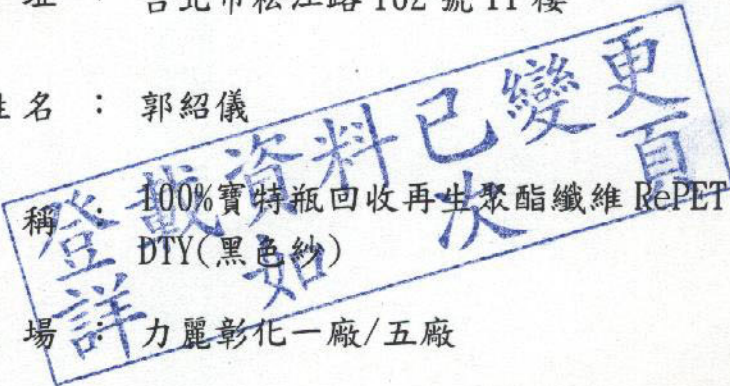 址 : 台北市松江路162號11樓
姓名 : 郭紹儀
稱 : 100%寶特瓶回收再生聚酯纖維 RePET
DTY(黑色紗)
場 : 力麗彰化一廠/五廠
登載資料已變更
詳如次頁